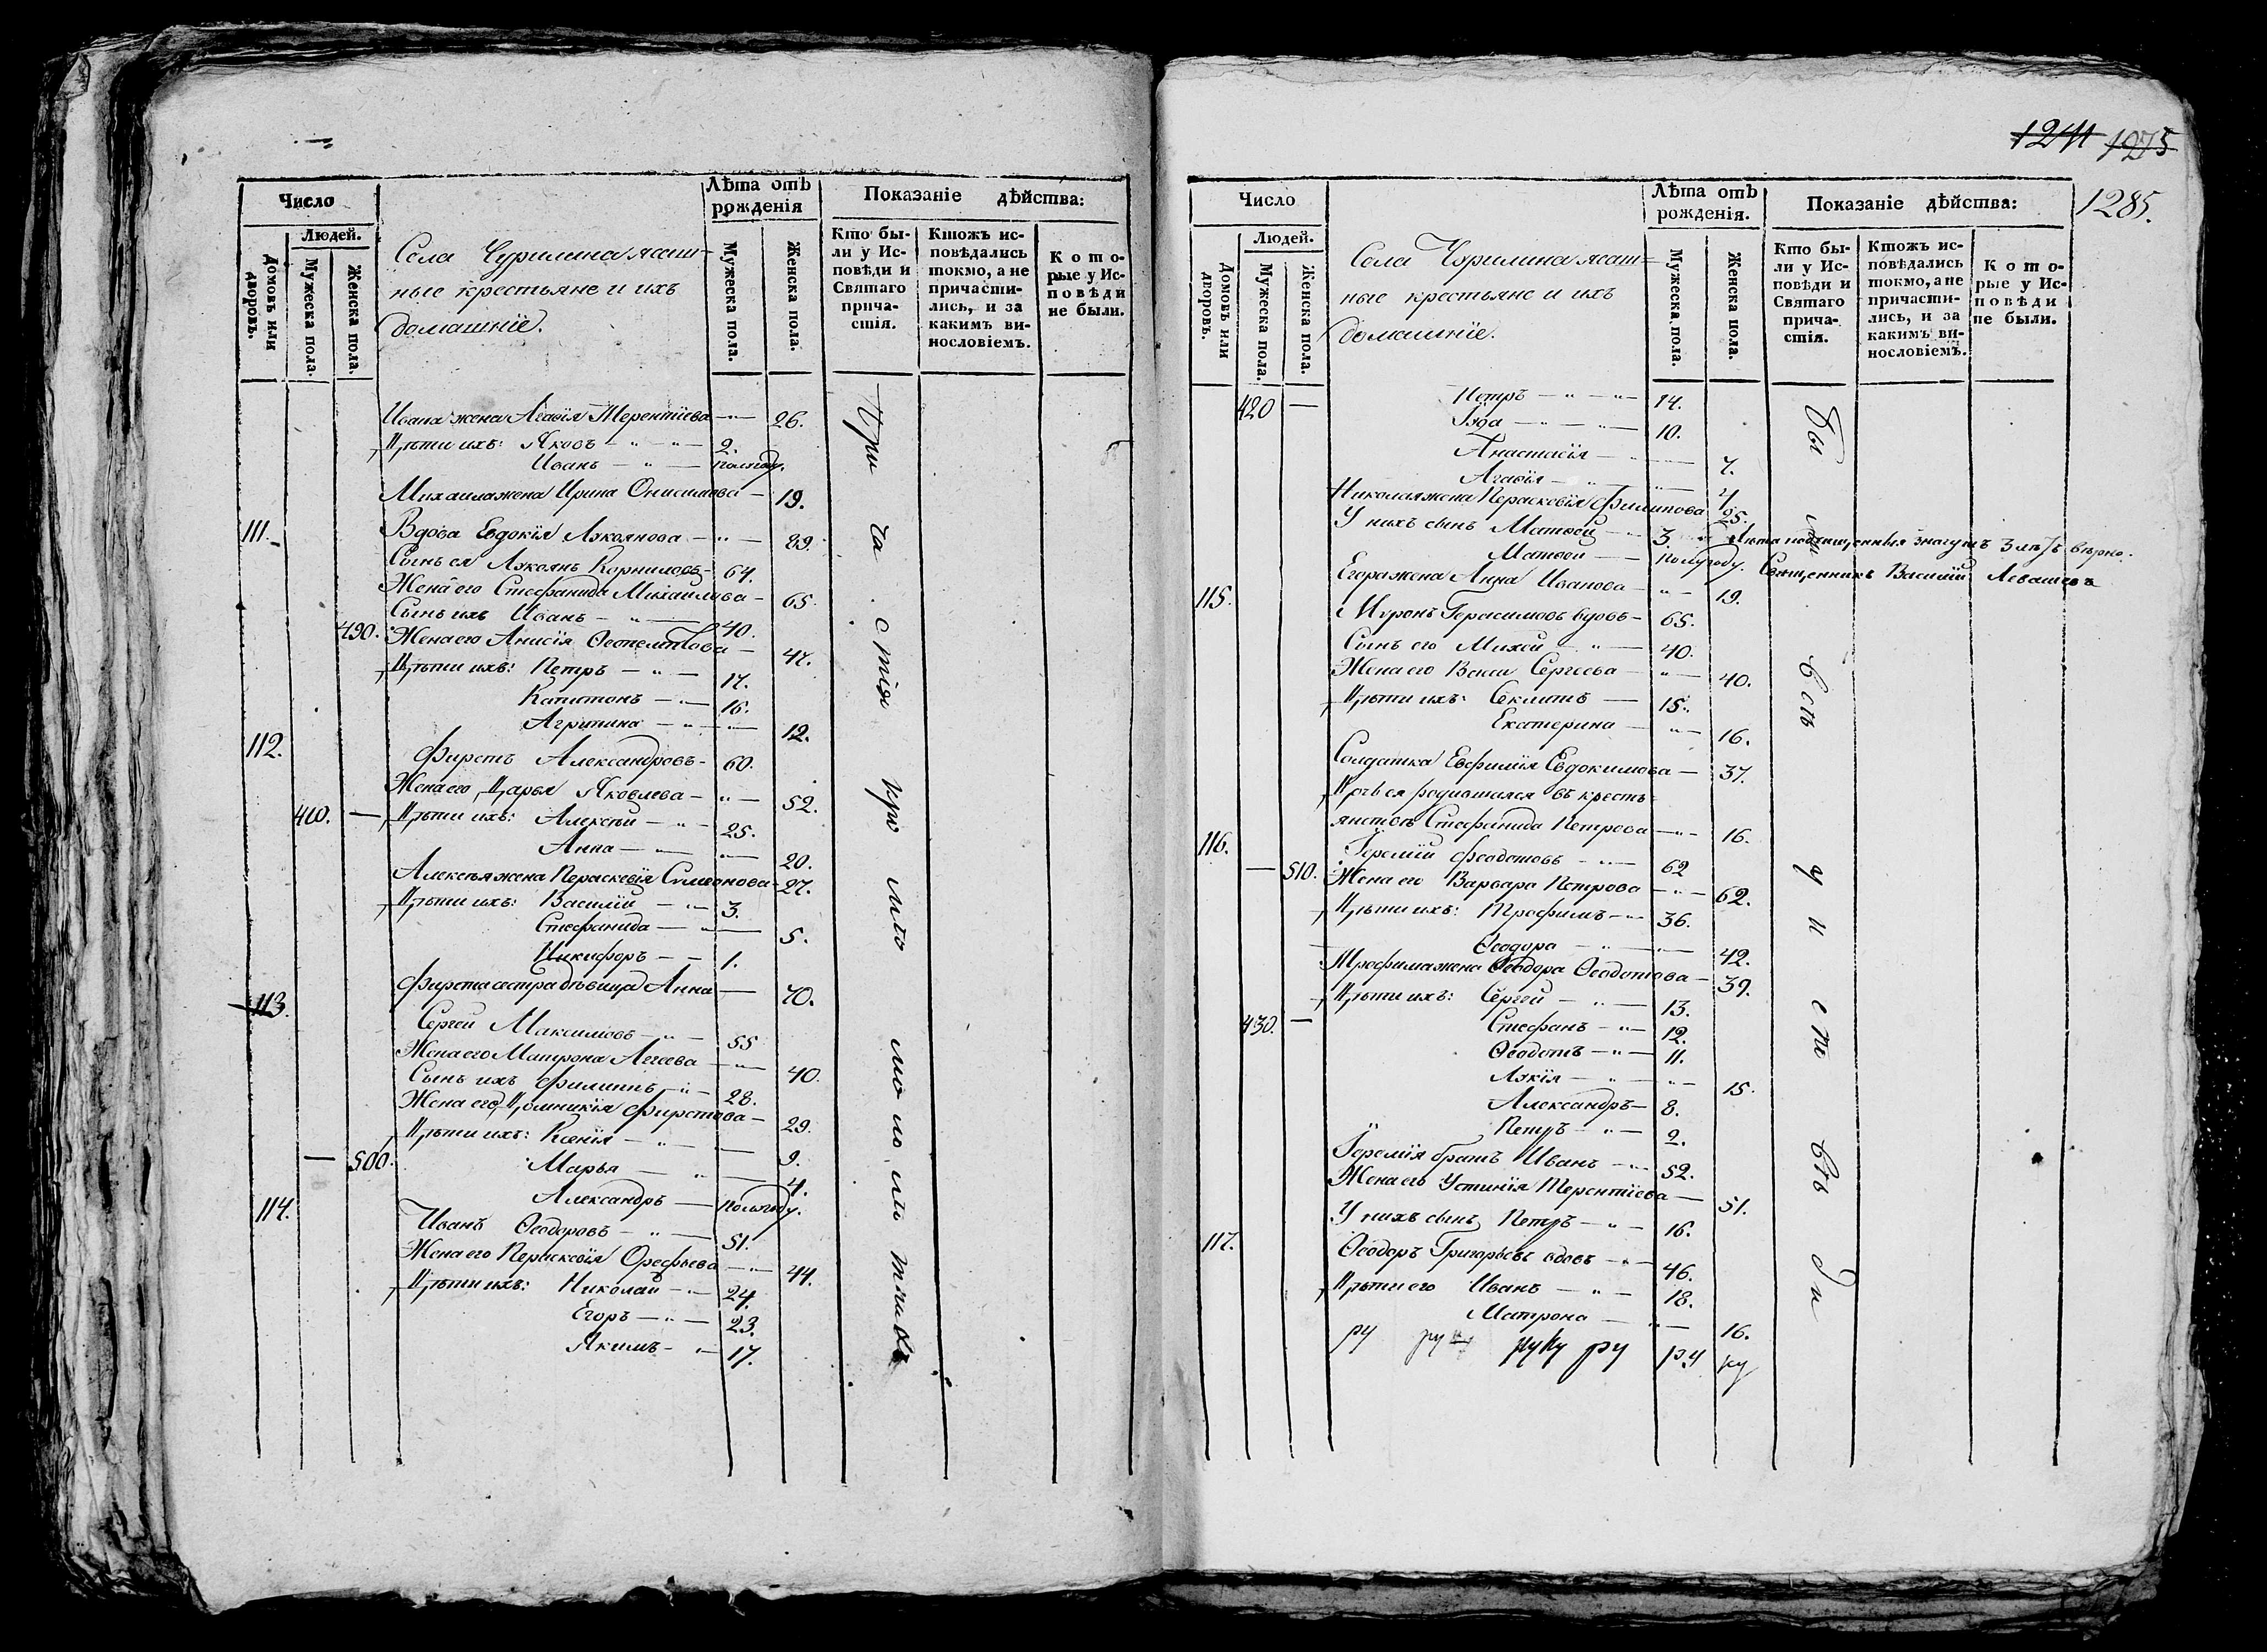 Число
Людей.
Домовъ или дворовъ.
Мужеска пола.
Женска пола.
Села Чурилина ясаш-
ные крестьяне и ихъ
домашніе.
Лѣта отъ рожденія
Мужеска пола.
Женска пола.
Показаніе дѣйства:
Кто бы-
ли у Ис-
повѣди и
Святаго
прича-
стія.
Ктожъ ис-
повѣдались
токмо, а не
причасти-
лись, и за
какимъ ви-
нословіемъ.
Кото-
рые у Ис-
повѣди
не были.
Ивана жена Агафія Терентіева — 26.
Дѣти ихъ: Яковъ — 2.
Иванъ — полгоду.
Михаила жена Ирина Онисимова — 19.
111. Вдова Евдокія Лукоянова — 89.
Сынъ ея Лукоянъ Корниловъ — 64.
Жена его Стефанида Михаилова — 65.
Сынъ ихъ Иванъ — 40.
490. Жена его Анисія Ѳеопемптова — 47.
Дѣти ихъ: Петръ — 17.
Капитонъ — 16.
Агрипина — 12.
112. Фирстъ Александровъ — 60.
Жена его Дарья Яковлева — 52.
410. — Дѣти ихъ: Алексѣй — 25.
Анна — 20.
Алексѣя жена Параскевія Симеонова — 27.
Дѣти ихъ: Василій — 3.
Стефанида — 5.
Никифоръ — 1.
Фирста сестра дѣвица Анна — 70.
113. Сергей Максимовъ — 55
Жена его Матрона Агеева — 40.
Сынъ ихъ Филиппъ — 28.
Жена его Домникія Фирстова — 29.
Дѣти ихъ: Ксенія — 9.
— 500. Марья — 4.
Александръ — полгоду.
114. Иванъ Ѳеодоровъ — 51.
Жена его Параскевія Орефьева — 44.
Дѣти ихъ: Николай — 24.
Егоръ — 23.
Якимъ — 17.
При ча стія
1241 1275
1285.
Число
Людей.
Домовъ или дворовъ.
Мужеска пола.
Женска пола.
Села Чурилина ясаш-
ные крестьяне и ихъ
домашніе.
Лѣта отъ рожденія.
Мужеска пола.
Женска пола.
Показаніе дѣйства:
Кто бы-
ли у Ис-
повѣди и
Святаго
прича-
стія.
Ктожъ ис-
повѣдались
токмо, а не
причасти-
лись, и за
какимъ ви-
нословіемъ.
Кото-
рые у Ис-
повѣди
не были.
420 — Петръ — 14.
Іуда — 10.
Анастасія — 7.
Агафія — 4.
Николая жена Параскевія Филипова 25.
У нихъ сынъ Матвей — 3. Лѣта подчищенныя значутъ 3 лѣтъ вѣрно.
Матвей — полугоду. Священникъ Василій Левашевъ
Егора жена Анна Иванова — 19.
115. Миронъ Герасимовъ вдовъ — 65.
Сынъ его Михей — 40.
Жена его Васса Сергеева — 40.
Дѣти ихъ: Секлитъ — 15.
Екатерина — 16.
Солдатка Евфимія Евдокимова — 37.
Дочь ея родившаяся въ кресть-
янстве Стефанида Петрова — 16.
116. Іеремій Феодотовъ — 62
— 510. Жена его Варвара Петрова — 62.
Дѣти ихъ: Трофимъ — 36.
Ѳеодора — 42.
Трофима жена Ѳеодора Ѳеодотова — 39.
Дѣти ихъ: Сергей — 13.
430. — Стефанъ — 12.
Ѳеодотъ — 11.
Лукія — 15.
Александръ — 8.
Петръ — 2.
Іеремія братъ Иванъ — 52.
Жена его Устинія Терентіева — 51.
У нихъ сынъ Петръ — 16.
117. Ѳеодоръ Григорьевъ вдовъ — 46.
Дѣти его Иванъ — 18.
Матрона — 16.
ру ру руку ру ру ку